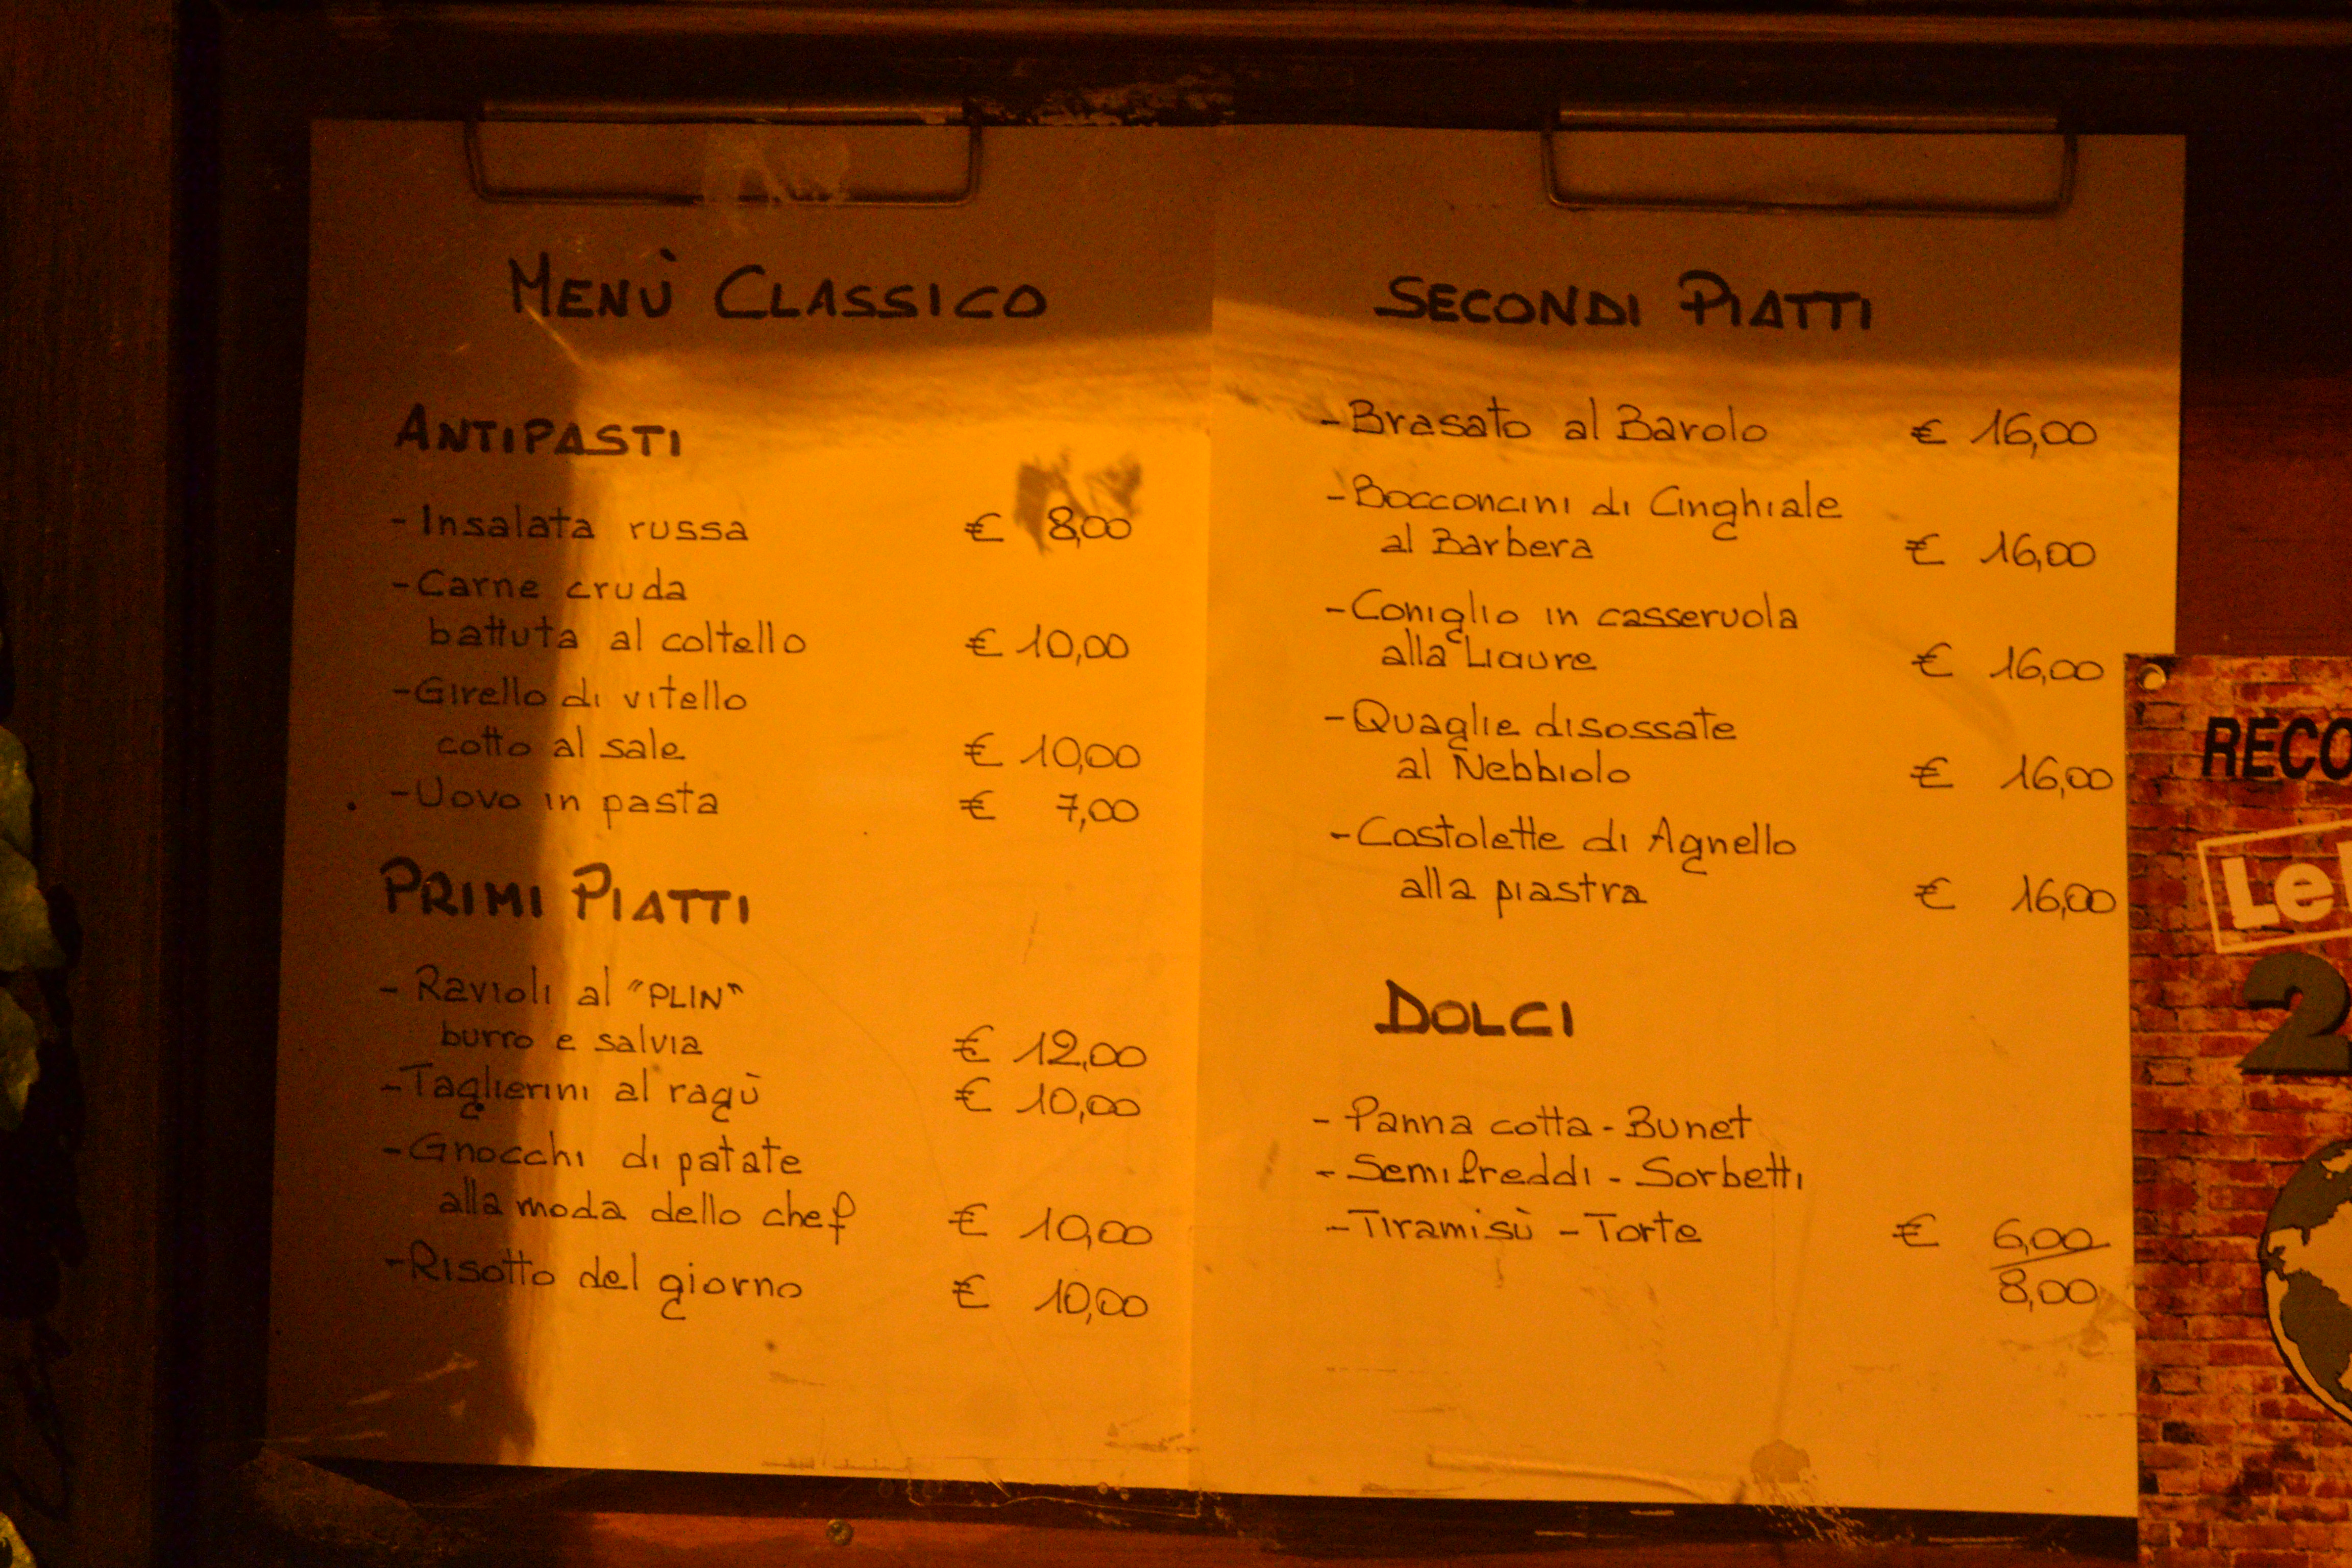 MENÙ CLASSICO
ANTIPASTI
- Insalata russa € 8,00
- Carne cruda
battuta al coltello € 10,00
- Girello di vitello
cotto al sale € 10,00
- Uovo in pasta € 7,00
PRIMI PIATTI
- Ravioli al "PLIN"
burro e salvia € 12,00
- Taglierini al ragù € 10,00
- Gnocchi di patate
alla moda dello chef € 10,00
- Risotto del giorno € 10,00
SECONDI PIATTI
- Brasato al Barolo € 16,00
- Bocconcini di Cinghiale
al Barbera € 16,00
- Coniglio in casseruola
alla Ligure € 16,00
- Quaglie disossate
al Nebbiolo € 16,00
- Costolette di Agnello
alla piastra € 16,00
DOLCI
- Panna cotta - Bunet
- Semifreddi - Sorbetti
- Tiramisù - Torte € 6,00
8,00
RECO
Le
2